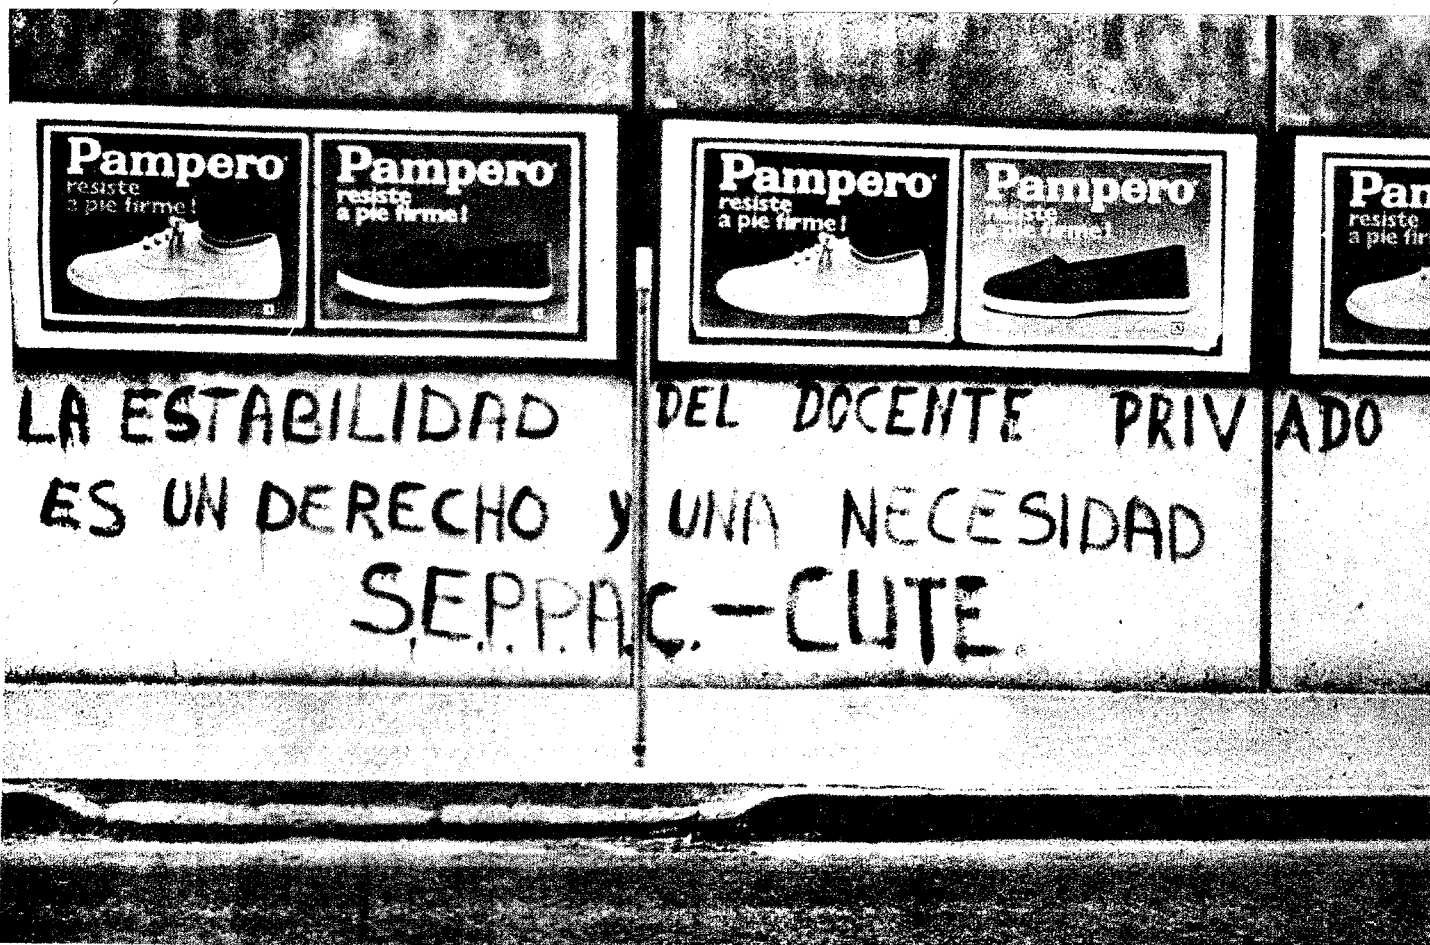 Pampero
resiste
a pie firme!
Pampero
resiste
a pie firme!
Pampero
resiste
a pie firme!
Pampero
resiste
a pie firme!
Pam
resiste
a pie fir
LA ESTABILIDAD DEL DOCENTE PRIVADO
ES UN DERECHO y UNA NECESIDAD
S.E.P.P.A.C.-CUTE